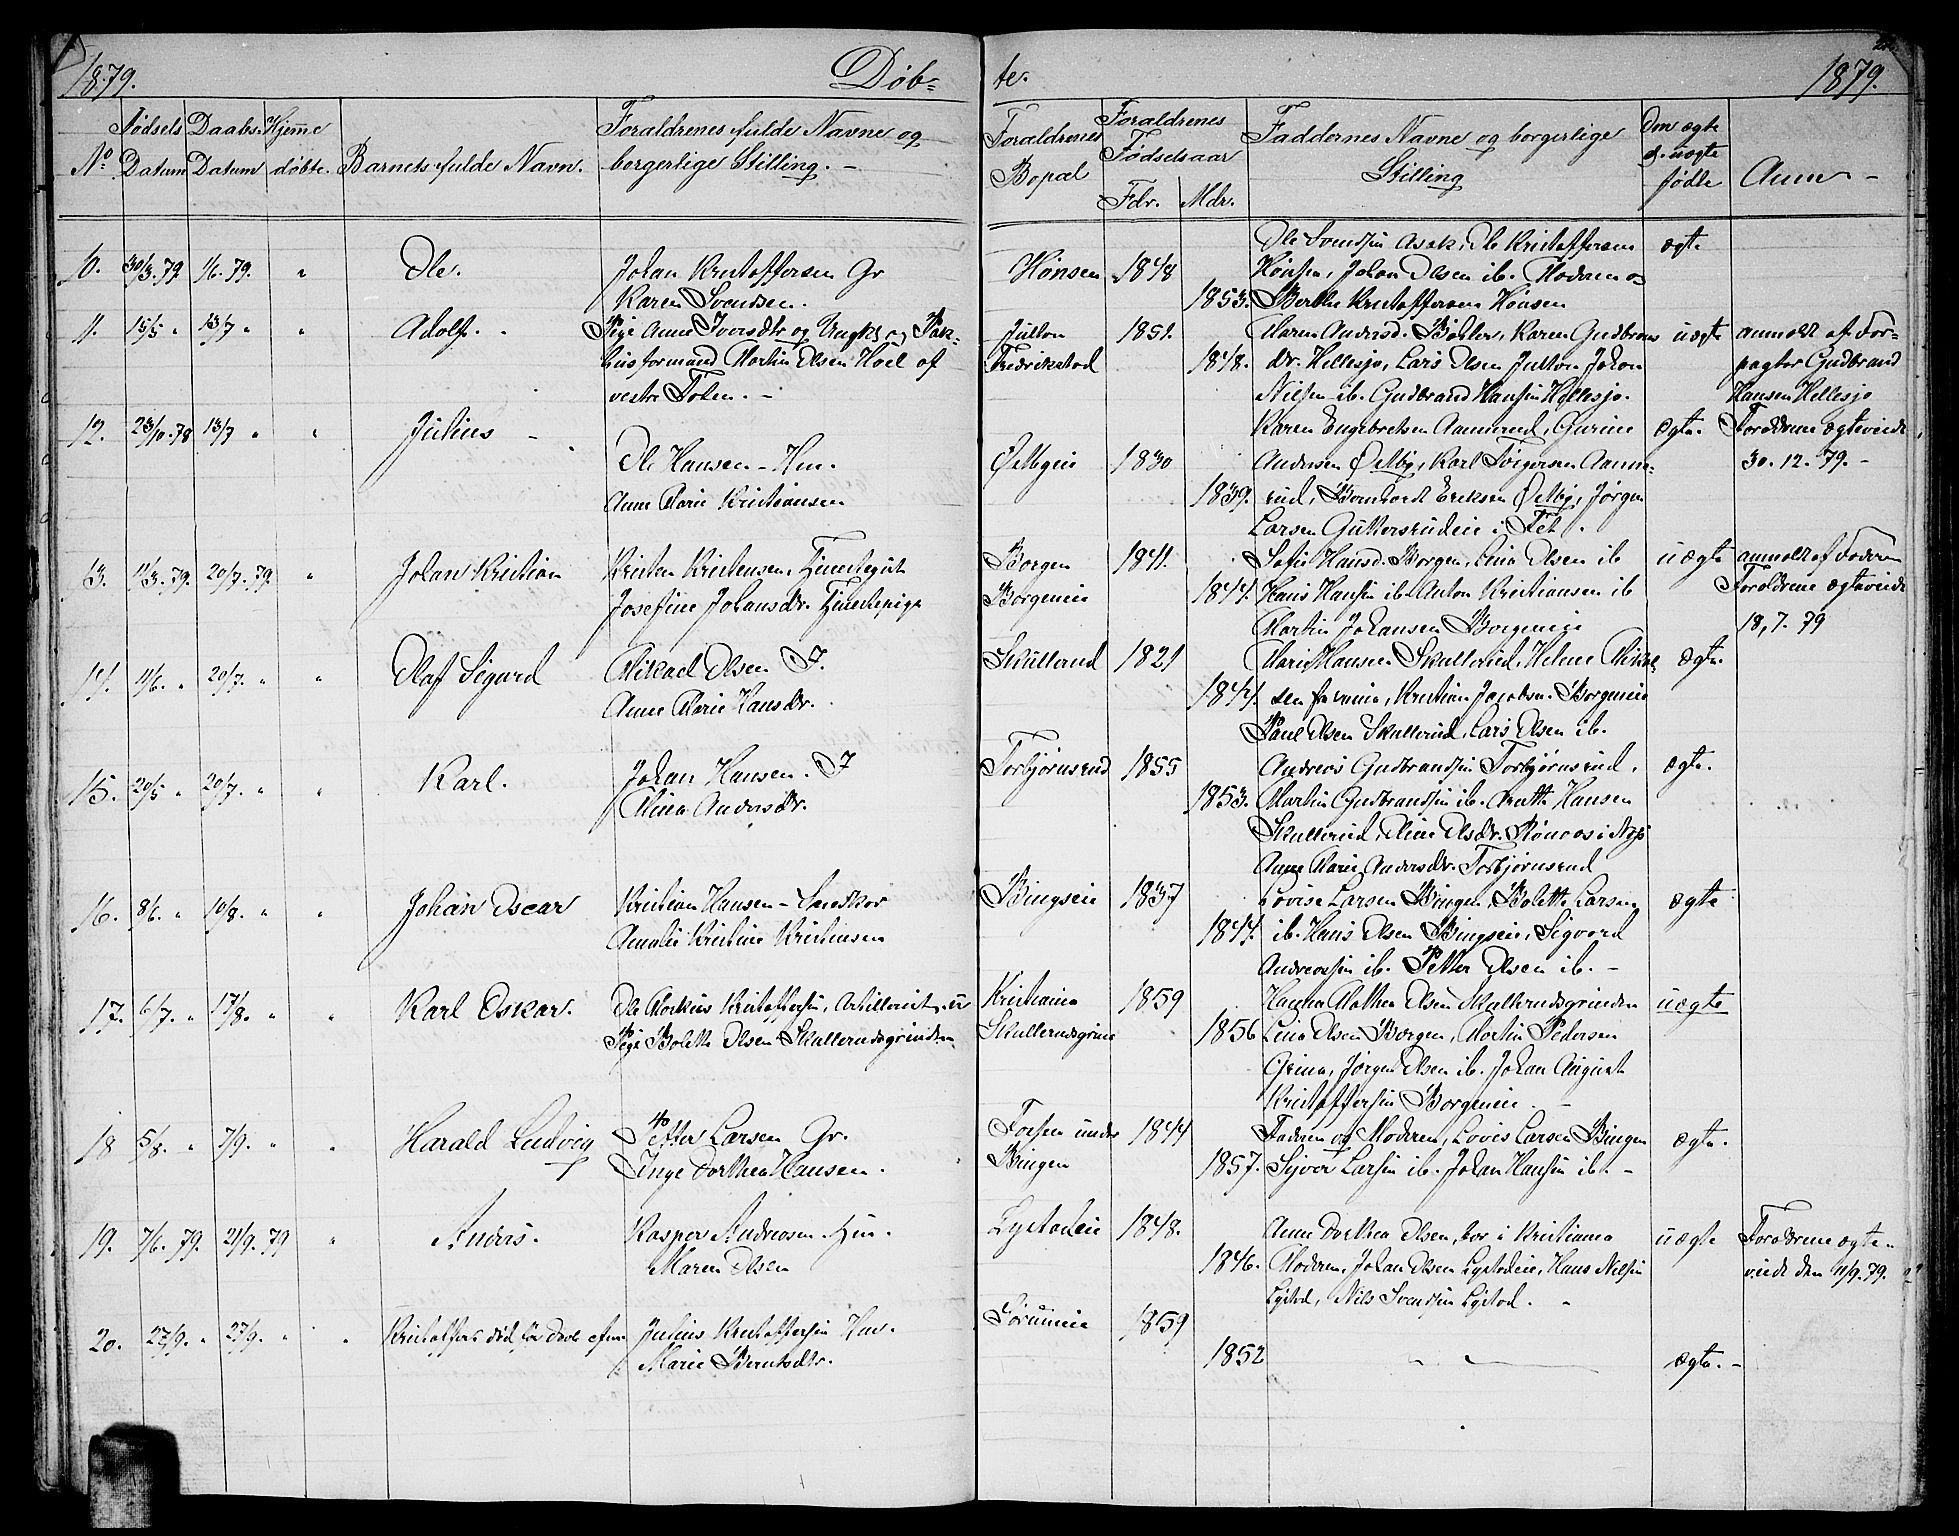 1879. Døb-
te. 1879.
No Fødsels Datum Daabs Datum Hjemme døbte. Barnets fulde Navn. Forældrenes fulde Navne og borgerlige Stilling. - Forældrenes Bopæl Forældrenes Fødselsaar Fdr. Mdr. Faddernes Navne og borgerlige Stilling Om ægte el. uægte fødte Anm -
Ole Svendsen Asak, Ole Kristoffersen ægte
10. 30/3.79 1/6.79. " Ole. Johan Kristoffersen Gr Hønsen 1848 Hønsen, Johan Olsen ib. Moderen og
Karen Svendsen. 1853. Berthe Kristoffersen Hønsen
11. 15/5 " 13/7 " " Adolf. Pige Anne Iversdtr og Ungk. og Pak- Julton 1851. Maren Andersd. Bøhler, Karen Gudbrands uægte anmeldt af For-
husformand Martin Olsen Hoel af Fredrikstad 1848. dr. Hellesjø, Lars Olsen Julton Johan pagter Gudbrand
vestre Toten. - Nilsen ib. Gudbrand Hansen Hellesjø. Hansen Hellesjø
12. 23/10.78 13/7 " " Julius - Karen Engebretsen Aamerud, Gurine ægte. Forældrene ægteviede
Ole Hansen - Hm. Ørbyeie 1830 Andersen Ørby, Karl Torgersen Aame- 30.12.79. -
Anne Marie Kristiansen 1839. rud, Bernhard Eriksen Ørby, Jørgen
Larsen Guttersrudeie i Fet.
13. 11/3.79. 20/7.79. " Johan Kristian Kristen Kristensen, Tjenestegut Borgen 1841. Sofie Hansd. Borgen, Lina Olsen ib uægte anmeldt af Faderen
Josefine Johansdr. Tjenestepige Borgeneie 1844. Hans Hansen ib. Anton Kristiansen ib Forældrene ægteviede
Martin Johansen Borgeneie 18,7.79
14. 1/6. " 20/7. " " Olaf Sigurd Mikael Olsen I. Skullerud 1821 Marie Hansen Skullerud, Helene Mikael ægte.
Anne Marie Hansdr. 1844. sen, Kristian Jacobsen Borgeneie
Paul Olsen Skullerud, Lars Olsen ib.
15. 20/5 " 20/7. " " Karl. Johan Hansen. I Torbjørnsrud 1855 Andreas Gudbrandsen Torbjørnsrud, ægte.
Mina Andersdr. 1853. Martin Gudbrandsen ib. Hansen
Skullerud, Oline Olsdr.
Anne Marie Andersdr. Torbjørnsrud
16. 8/6. " 10/8. " " Johan Oscar Kristian Hansen - Bingseie 1837 Lovise Larsen Bingen, Bolette Larsen ægte
Amalie Kristine Kristensen 1844. ib. Hans Olsen Bingseie, Sigvard
Andreassen ib. Petter Olsen ib. -
17. 6/7. " 17/8. " " Karl Oskar. Ole Markus Kristoffersen, Artillerist, og Kristiania 1859 Hanna Mathea Olsen Skullerudsgrinden uægte
Pige Bolette Olsen Skullerudsgrinden Skullerudsgrind 1856 Lina Olsen Borgen, Martin Pedersen
Grina, Jørgen Olsen ib. Johan August
Kristoffersen Borgeneie. -
18 5/8. " 7/9. " " Harald Ludvig Petter Larsen Gr. Fossen under 1844 Faderen og Moderen, Lovis Larsen Bingen ægte.
Inge Dorthea Hansen. Bingen 1857. Syver Larsen ib. Johan Hansen ib. -
19. 7/6.79. 21/9.79 " Anders. Kasper Andreasen Hm. Lystadeie 1848. Anne Dorthea Olsen, bor i Kristiania uægte Forældrene ægte-
Maren Olsen 1846. Moderen, Johan Olsen Lystadeie, Hans Nilsen viede den 11/9.79.
Lystad, Nils Svendsen Lystad. "
20. 27/9. " 27/9. " " Kristoffer død før Julius Kristoffersen Hm. Sørumeie 1859
Marie Berntsdtr. 1852 " " ægte. -